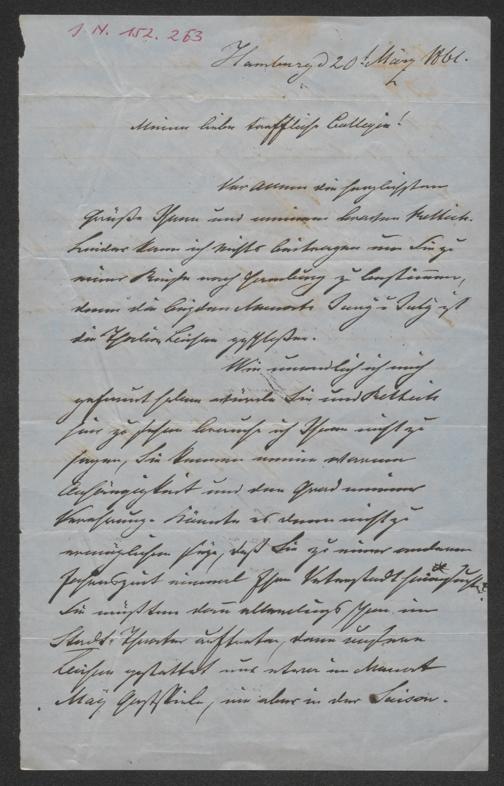 J. N. 152.263
Hamburg d 20t März 1861.
Meine liebe treffliche Collegin!
Vor allem die herzlichsten
Grüße Ihnen und meinem braven Rettich.
Leider kann ich nichts beitragen um Sie zu
einer Reise nach Hamburg zu bestimmen,
denn die beyden Monate Juny u July ist
die Thalia Bühne geschloßen.
Wie unendlich ich mich
gefreut haben würde Sie und Rettich
hier zu sehen brauche ich Ihnen nicht zu
sagen, Sie kennen meine warme
Anhänglichkeit und den Grad meiner
Verehrung. Könnte es denn nicht zu
ermöglichen seyn, daß Sie zu einer anderen
Jahreszeit einmal Ihre Vaterstadt
Sie müßten dann allerdings schon im
Stadt-Theater auftreten, denn unsere
Bühne gestattet nur etwa im Monat
May Gastspiele, nie aber in der Saison.